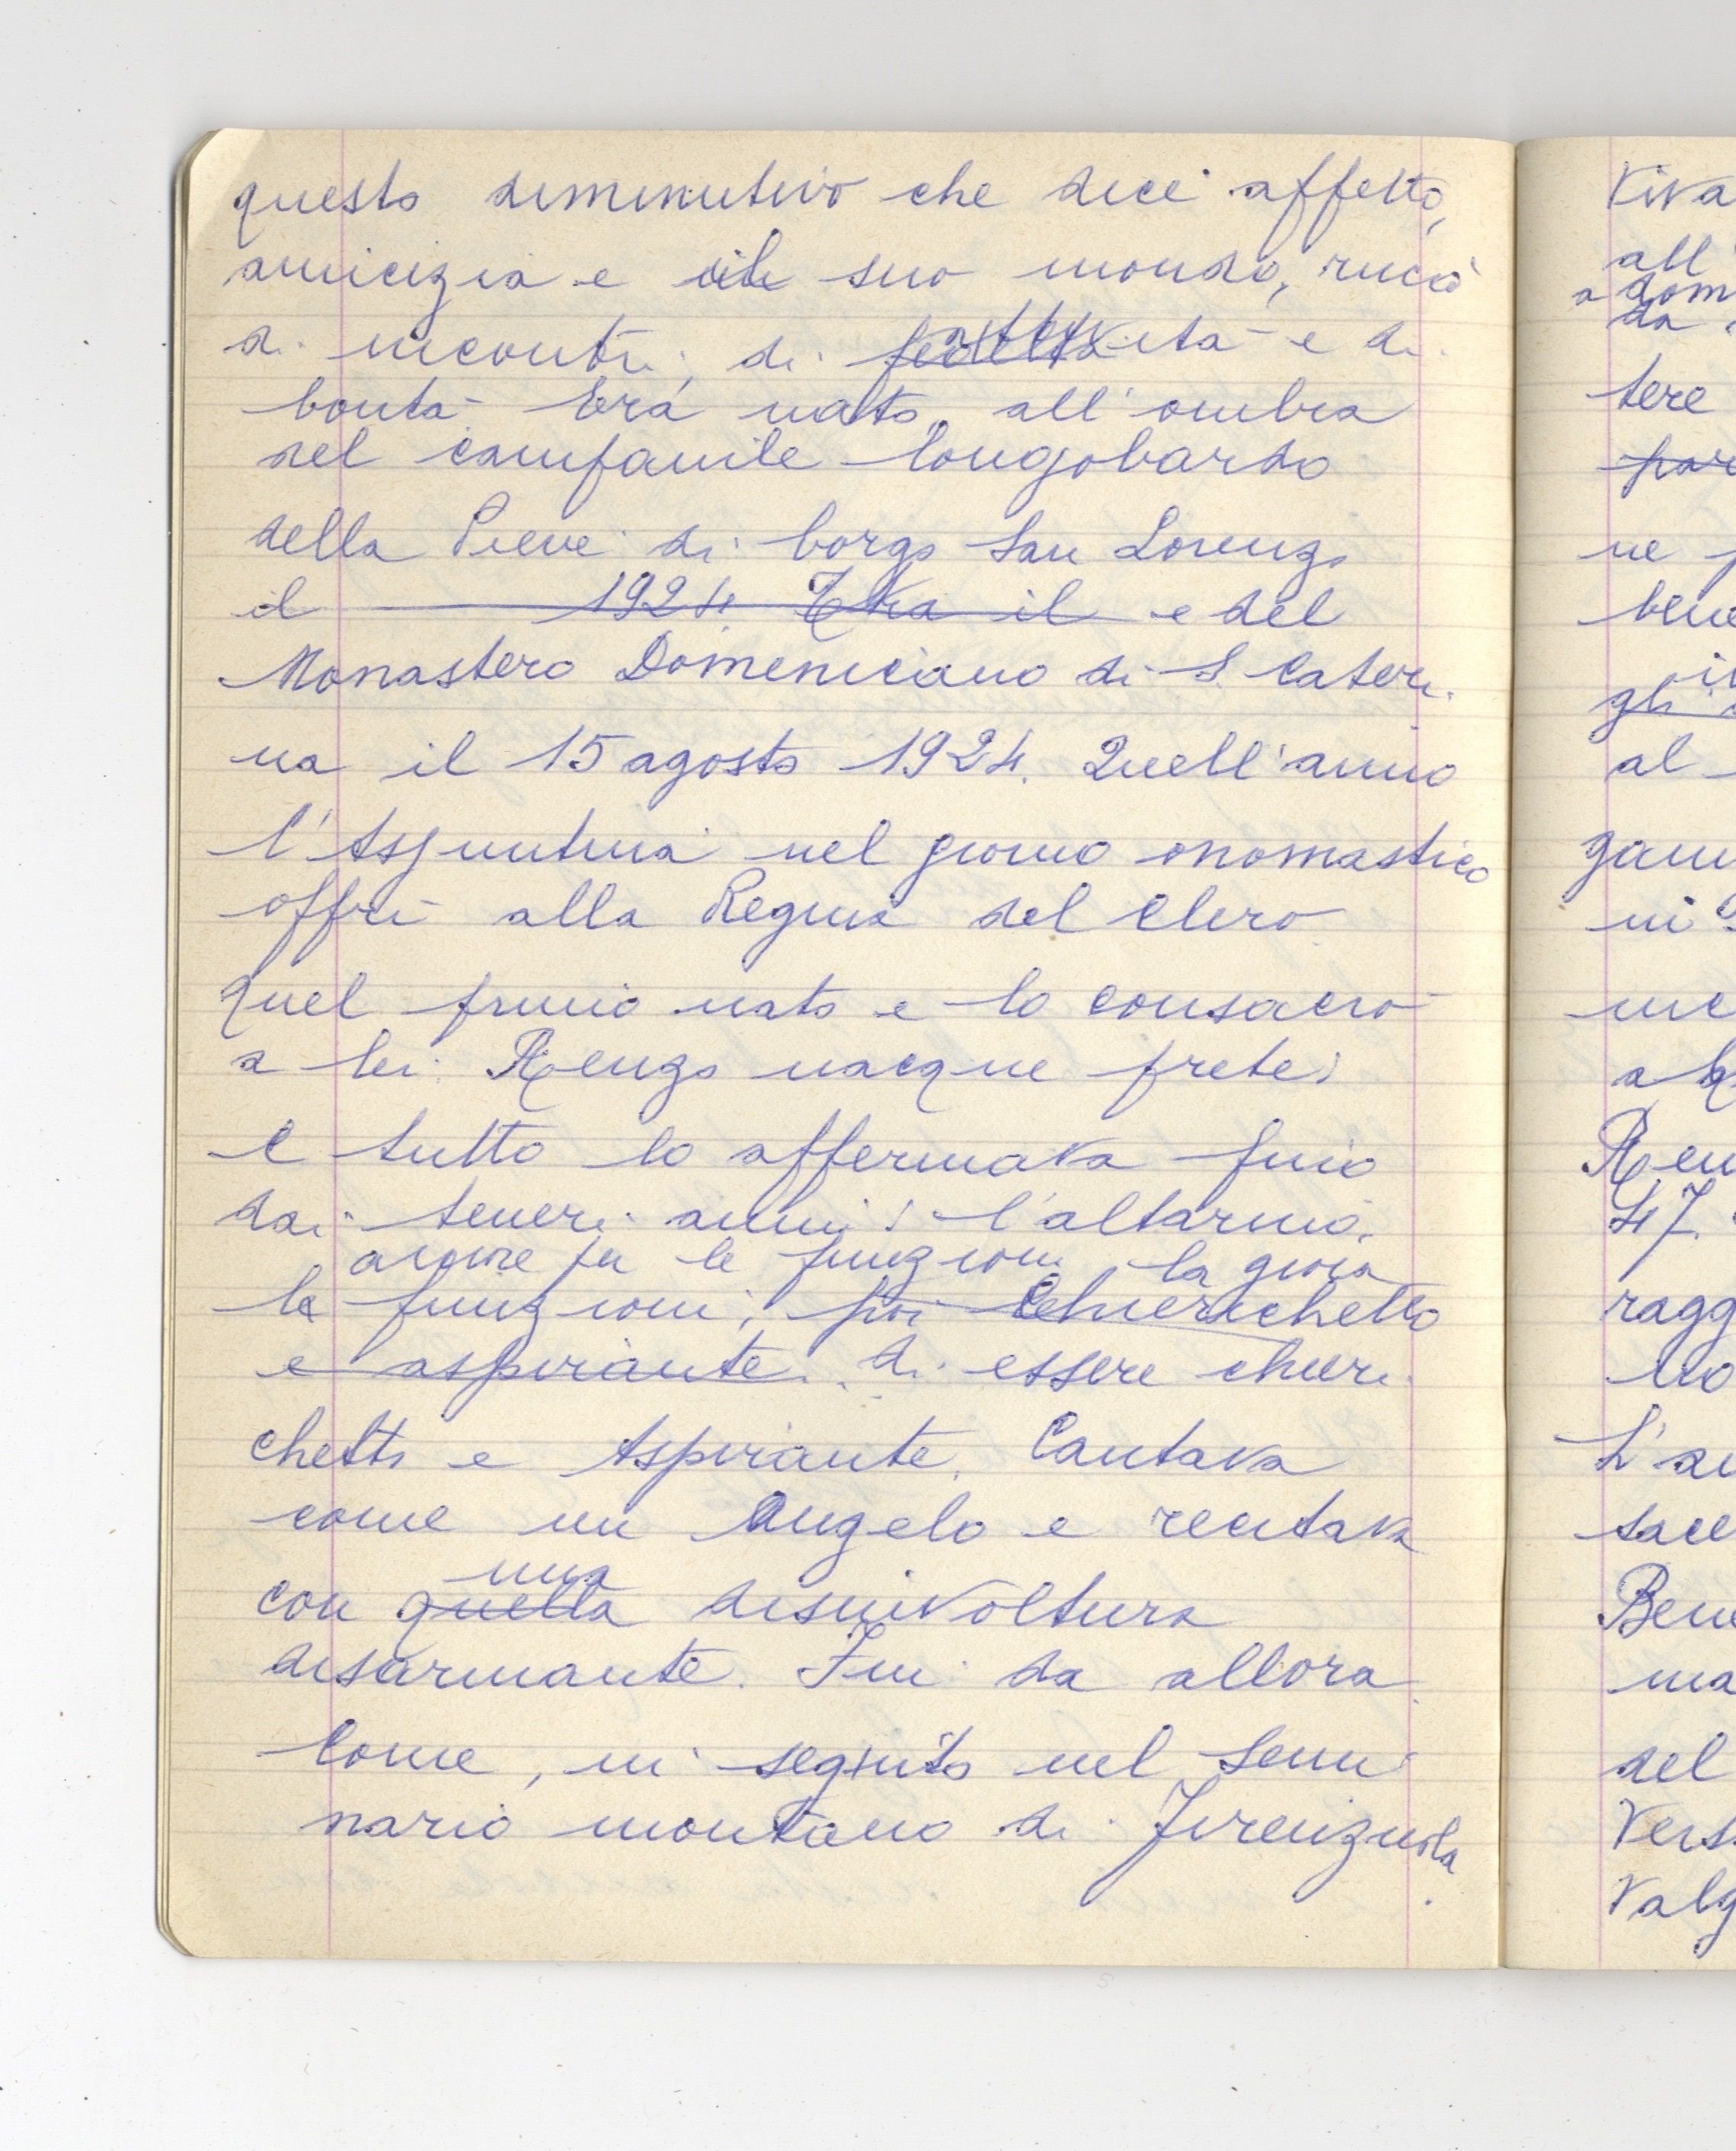 questo diminutivo che dice affetto,
amicizia e il suo mondo, ricco
di incontri, di attività e di
bontà. Era nato all'ombra
del campanile longobardo
della Pieve di borgo San Lorenzo
il 1924. Era il e del
Monastero Domenicano di S. Cateri
na il 15 agosto 1924. Quell'anno
l'Assuntina nel giorno onomastico
offrì alla Regina del Clero
quel primo nato e lo consacrò
a lei. Renzo nacque prete:
e tutto lo affermava fino
dai teneri anni: l'altarino,
amore per le funzioni la gioia
le funzioni, poi Chierichetto
e aspirante. di essere chieri
chetto e Aspirante. Cantava
come un Angelo e recitava
una
con quella disinvoltura
disarmante. Fin da allora
Come, in seguito nel Semi
nario montano di Firenzuola.
Viva
all'
a dom
da
tere
ne
bene
gli
al
gam
ni
me
a
Ren
47.
ragg
no
L'au
sace
Bene
ma
del
Vers
Valg